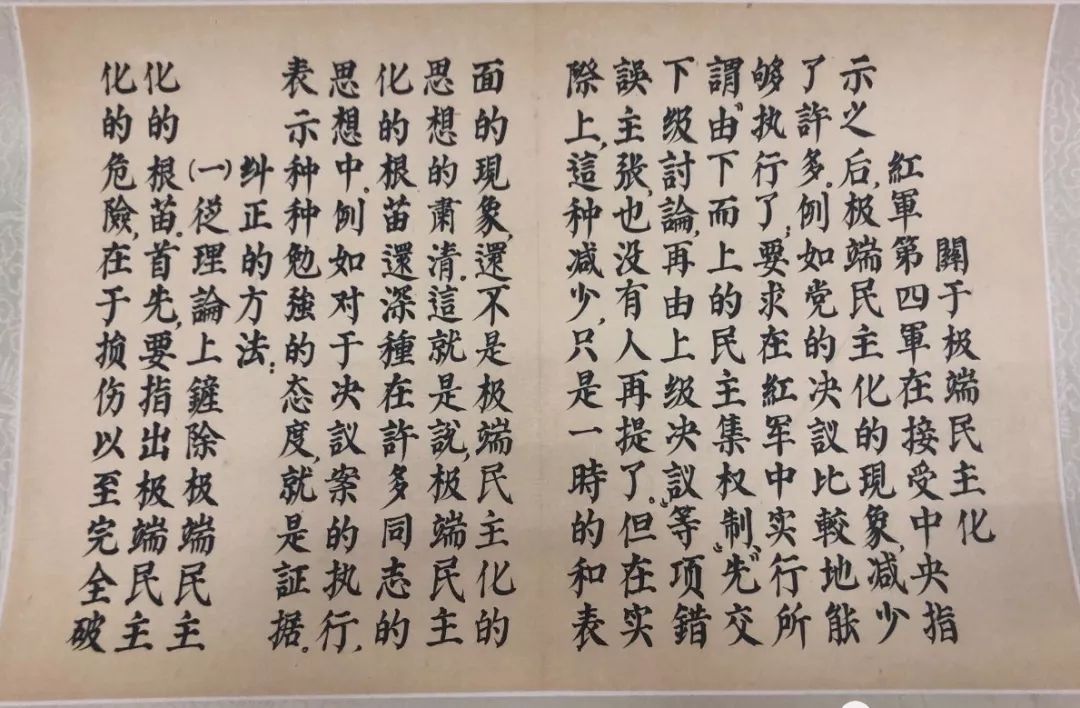 關于极端民主化
紅軍第四軍在接受中央指
示之后,极端民主化的現象,减少
了許多。例如党的决議比較地能
够执行了;要求在紅军中实行所
謂“由下而上的民主集权制”、“先交
下级討論,再由上级决議”等項錯
誤主张,也没有人再提了。但在实
際上,這种减少,只是一時的和表
面的現象,還不是极端民主化的
思想的肅清。這就是說,极端民主
化的根苗還深種在許多同志的
思想中。例如对于决議案的执行,
表示种种勉強的态度,就是証据。
纠正的方法:
(一)從理論上鏟除极端民主
化的根苗。首先,要指出极端民主
化的危險,在于损伤以至完全破